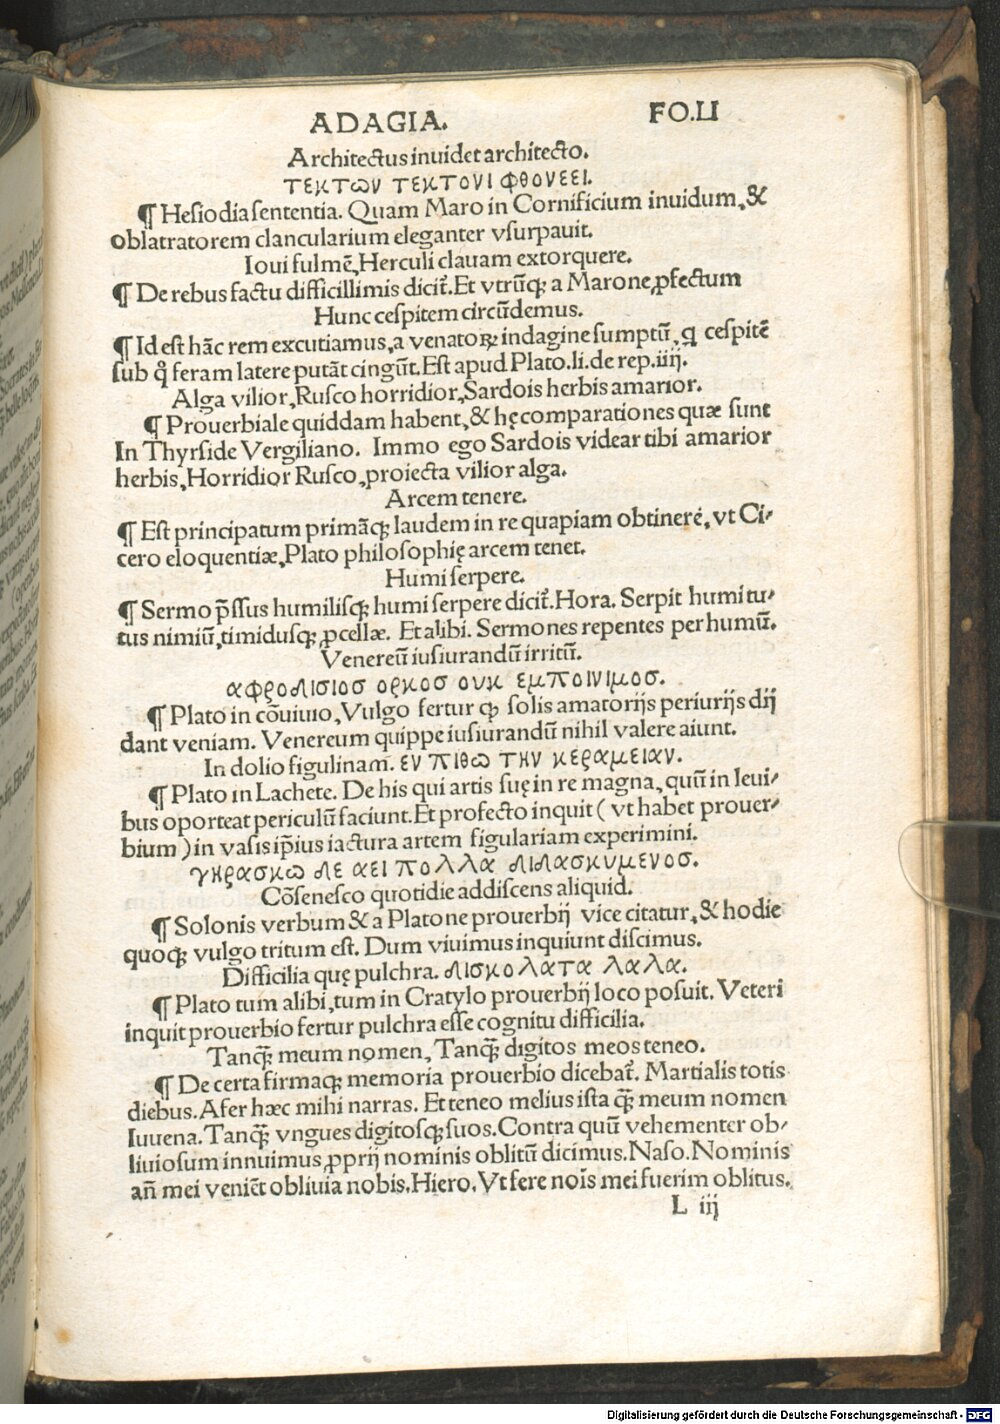 ADAGIA. FO.LI
Architectus inuidet architecto.
τεκτων τεκτονι φθονεει.
¶ Hesiodia sententia. Quam Maro in Cornificium inuidum, &
oblatratorem clancularium eleganter vsurpauit.
Ioui fulmē, Herculi clauam extorquere.
¶ De rebus factu difficillimis dicit̄. Et vtrūqꝫ a Marone ꝓfectum
Hunc cespitem circūdemus.
¶ Id est hāc rem excutiamus, a venatoꝝ indagine sumptū, ꝙ cespitē
sub q̄ feram latere putāt cingūt. Est apud Plato.li.de rep.iiij.
Alga vilior, Rusco horridior, Sardois herbis amarior.
¶ Prouerbiale quiddam habent, & hę comparationes quæ sunt
In Thyrside Vergiliano. Immo ego Sardois videar tibi amarior
herbis, Horridior Rusco, proiecta vilior alga.
Arcem tenere.
¶ Est principatum primāqꝫ laudem in re quapiam obtinere, vt Ci-
cero eloquentiæ, Plato philosophię arcem tenet.
Humi serpere.
¶ Sermo p̄ssus humilisqꝫ humi serpere dicit̄. Hora. Serpit humi tu-
tus nimiū, timidusqꝫ ꝓcellæ. Et alibi. Sermones repentes per humū.
Venereū iusiurandū irritū.
αφροδισιος ορκος ουκ εμποινιμος.
¶ Plato in cōuiuio, Vulgo fertur ꝙ solis amatorijs periurijs dij
dant veniam. Venereum quippe iusiurandū nihil valere aiunt.
In dolio figulinam. εν πιθω την κεραμειαν.
¶ Plato in Lachete. De his qui artis suę in re magna, quū in leui-
bus oporteat periculū faciunt. Et profecto inquit ( vt habet prouer-
bium ) in vasis ip̄ius iactura artem figulariam experimini.
γηρασκω δε αει πολλα διδασκυμενοσ.
Cōsenesco quotidie addiscens aliquid.
¶ Solonis verbum & a Platone prouerbij vice citatur, & hodie
quoqꝫ vulgo tritum est. Dum viuimus inquiunt discimus.
Difficilia quę pulchra. δισκολατα λαλα.
¶ Plato tum alibi, tum in Cratylo prouerbij loco posuit. Veteri
inquit prouerbio fertur pulchra esse cognitu difficilia.
Tanqꝫ̄ meum nomen, Tanqꝫ̄ digitos meos teneo.
¶ De certa firmaqꝫ memoria prouerbio dicebat̄. Martialis totis
diebus. Afer hæc mihi narras. Et teneo melius ista qꝫ̄ meum nomen
Iuuena. Tanqꝫ̄ vngues digitosqꝫ suos. Contra quū vehementer ob-
liuiosum innuimus, ꝓprij nominis oblitū dicimus. Naso. Nominis
an̄ mei veniēt obliuia nobis. Hiero. Vt fere nōis mei fuerim oblitus.
L iij
Digitalisierung gefördert durch die Deutsche Forschungsgemeinschaft - DFG